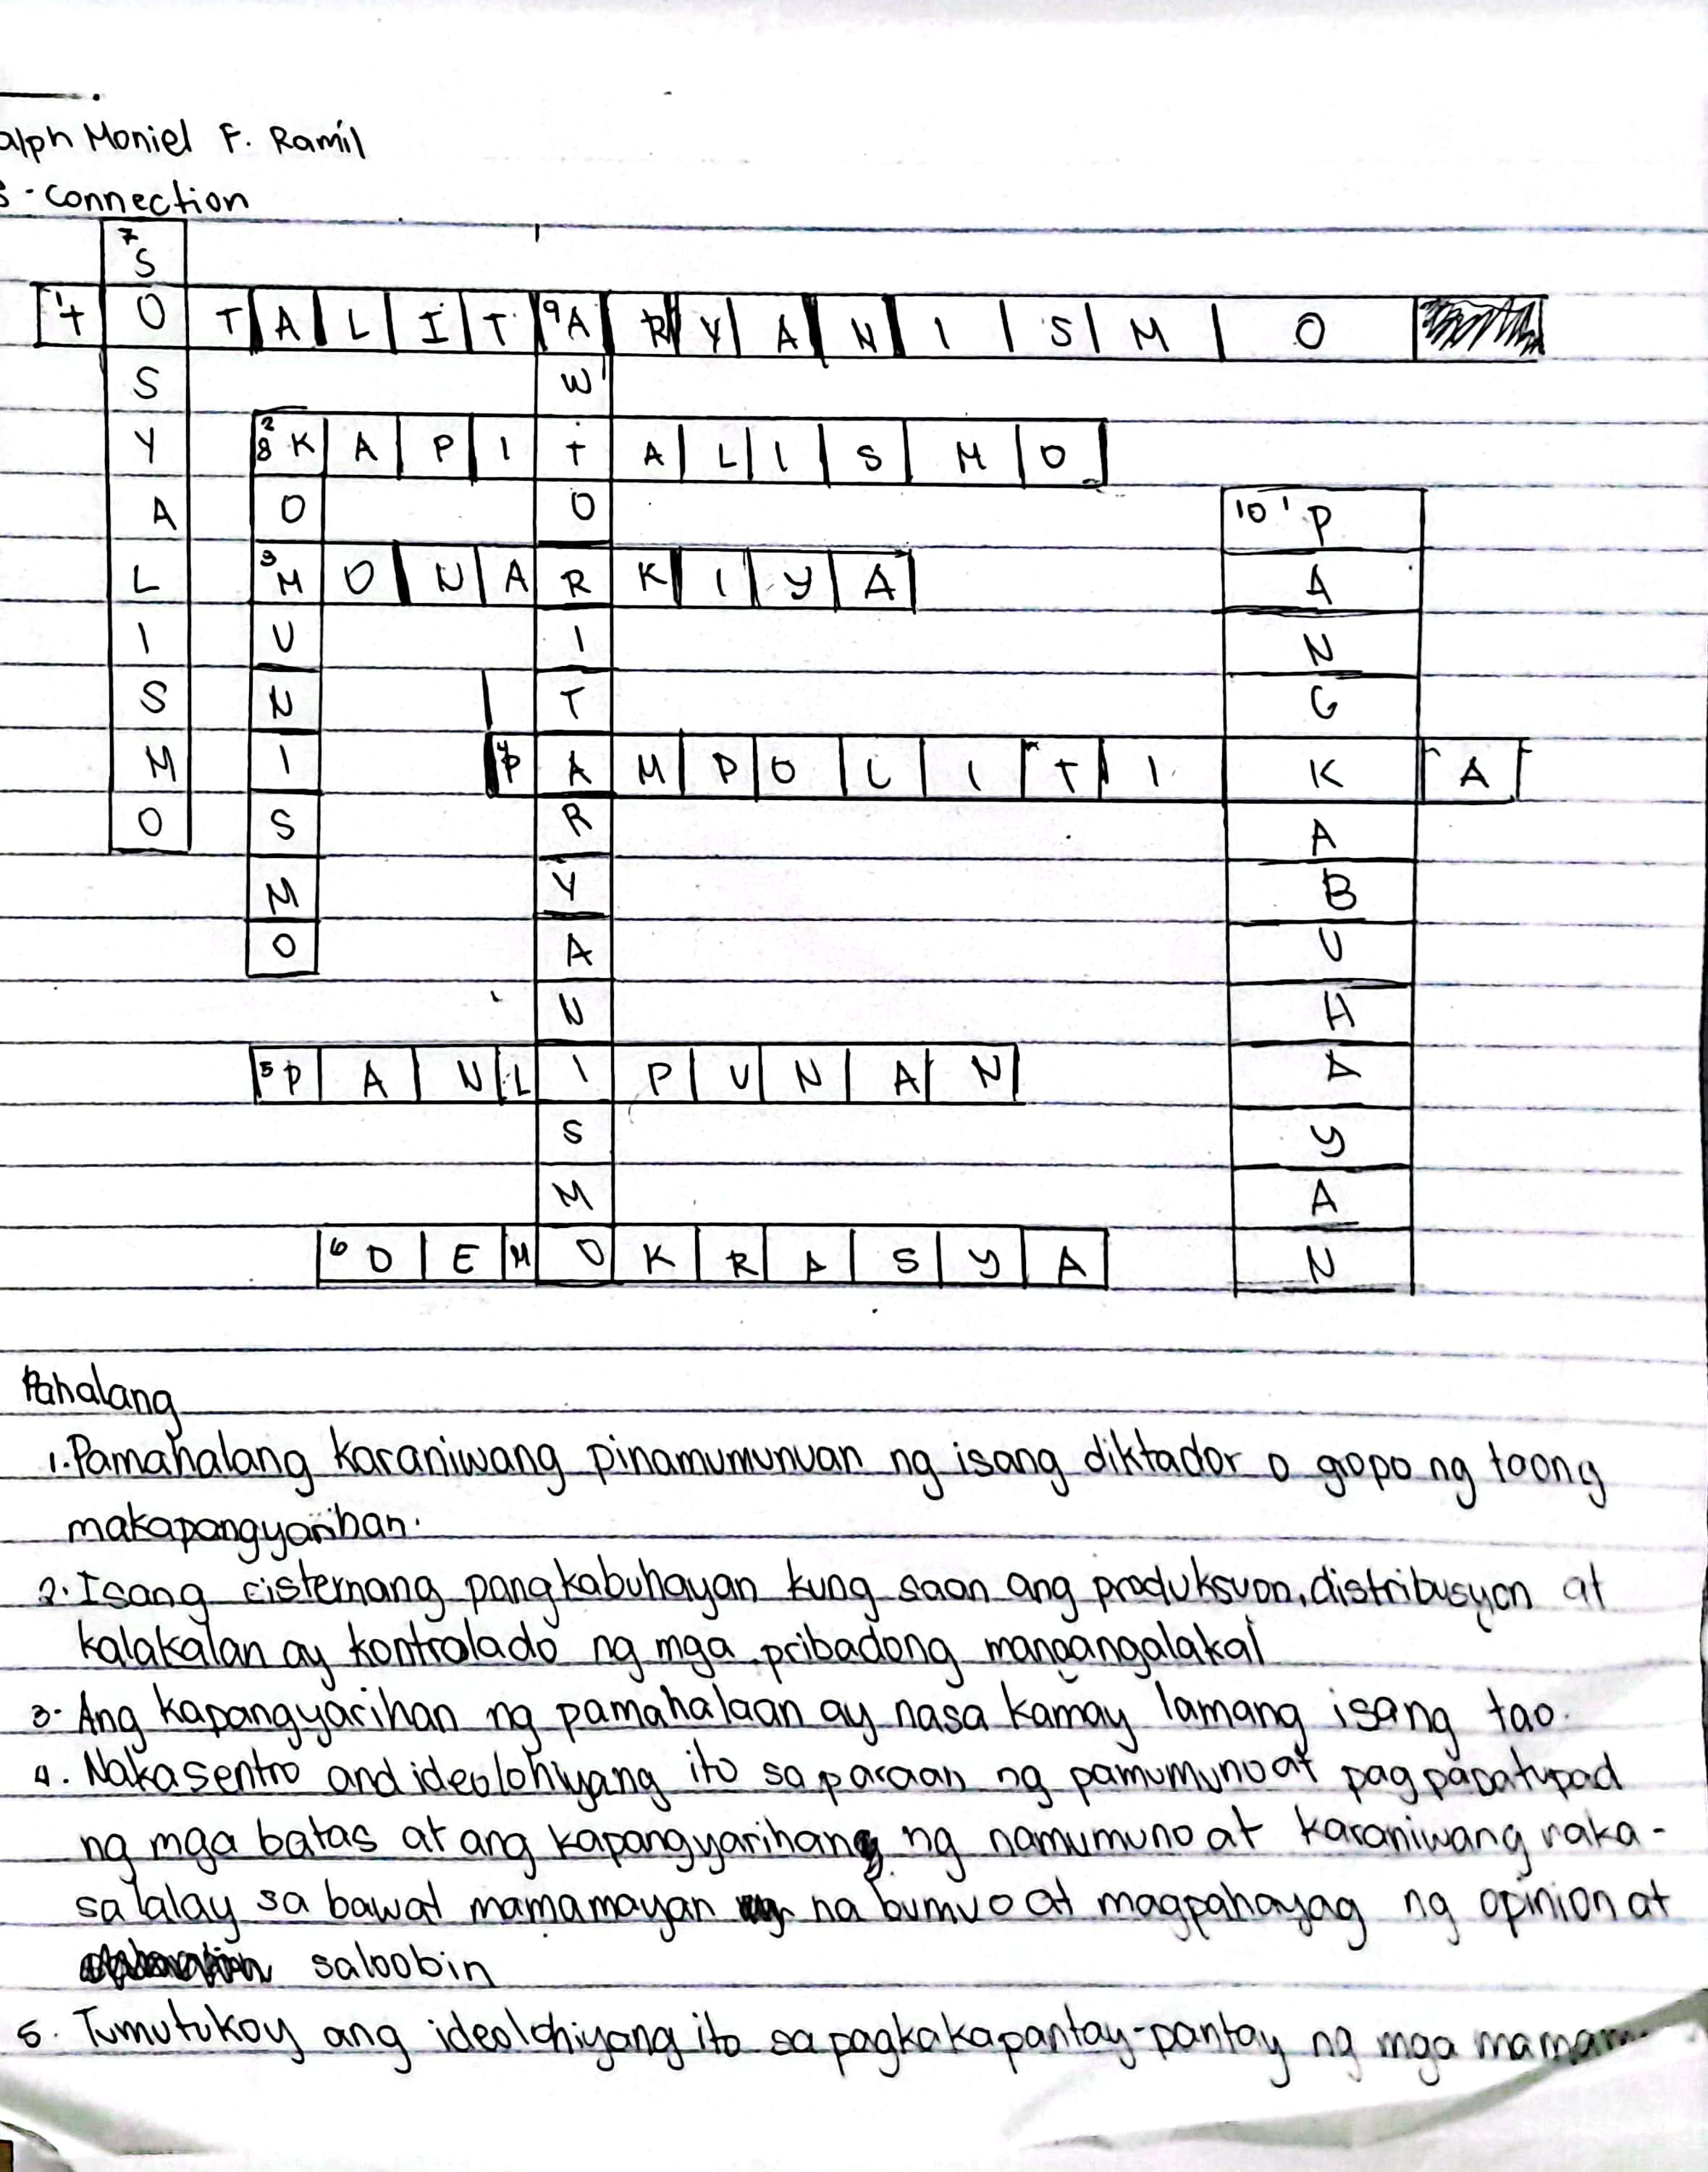 alph Moniel F. Ramil
- Connection
7 S
1 T O T A L I T 9 A R Y A N I S M O
S W
Y 2 8 K A P I T A L I S M O
A O O 10 P
L 3 M O N A R K I Y A A
I U I N
S N T G
M I 4 P A M P O L I T I K A
O S R A
M Y B
O A U
N H
5 P A N L I P U N A N A
S Y
M A
6 D E M O K R A S Y A N
Pahalang
1. Pamahalang karaniwang pinamumunuan ng isang diktador o gropo ng taong
makapangyarihan.
2. Isang sistemang pangkabuhayan kung saan ang produksuon, distribusyon at
kalakalan ay kontrolado ng mga pribadong mangangalakal
3. Ang kapangyarihan ng pamahalaan ay nasa kamay lamang isang tao.
4. Nakasentro and ideolohiyang ito sa paraan ng pamumuno at pagpapatupad
ng mga batas at ang kapangyarihang ng namumuno at karaniwang naka-
salalay sa bawat mamamayan na bumuo at magpahayag ng opinion at
saloobin
5. Tumutukoy ang ideolohiyang ito sa pagkakapantay-pantay ng mga